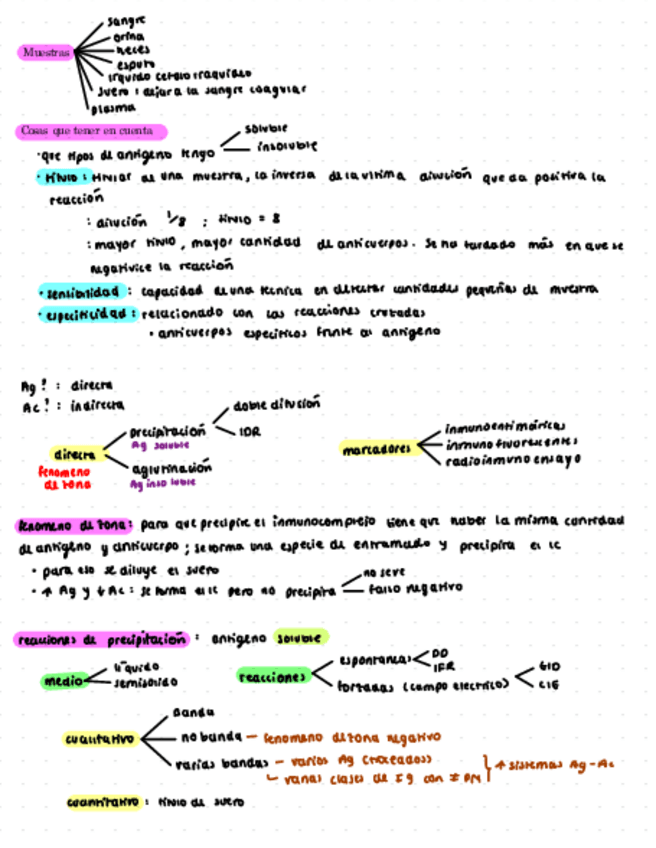 Muestras
sangre
orina
heces
esputo
líquido cefalorraquídeo
suero : dejar a la sangre coagular
plasma
Cosas que tener en cuenta
· que tipos de antígeno tengo
soluble
insoluble
· título : titular es una muestra, la inversa de la última dilución que da positiva la
reacción
: dilución 1/8 ; título = 8
: mayor título, mayor cantidad de anticuerpos. Se ha tardado más en que se
negativice la reacción
· sensibilidad : capacidad de una técnica en detectar cantidades pequeñas de muestra
· especificidad : relacionado con las reacciones cruzadas
· anticuerpos específicos frente al antígeno
Ag? : directa
Ac? : indirecta
directa
fenomeno
de zona
precipitación
Ag soluble
doble difusión
IDR
aglutinación
Ag insoluble
marcadores
inmunoenzimáticas
inmunofluorescentes
radioinmunoensayo
fenomeno de zona: para que precipite el inmunocomplejo tiene que haber la misma cantidad
de antígeno y anticuerpo ; se forma una especie de entramado y precipita el IC
· para eso se diluye el suero
· ↑ Ag y ↓ Ac : se forma el IC pero no precipita
no se ve
falso negativo
reacciones de precipitación : antígeno soluble
medio
líquido
semisólido
reacciones
espontáneas
DD
IFR
forzadas (campo eléctrico)
EID
CIE
cualitativo
Banda
no banda — fenomeno de zona negativo
varias bandas — varios Ag (troceados)
varias clases de Ig con ≠ PM
↑ sistemas Ag-Ac
cuantitativo : título de suero